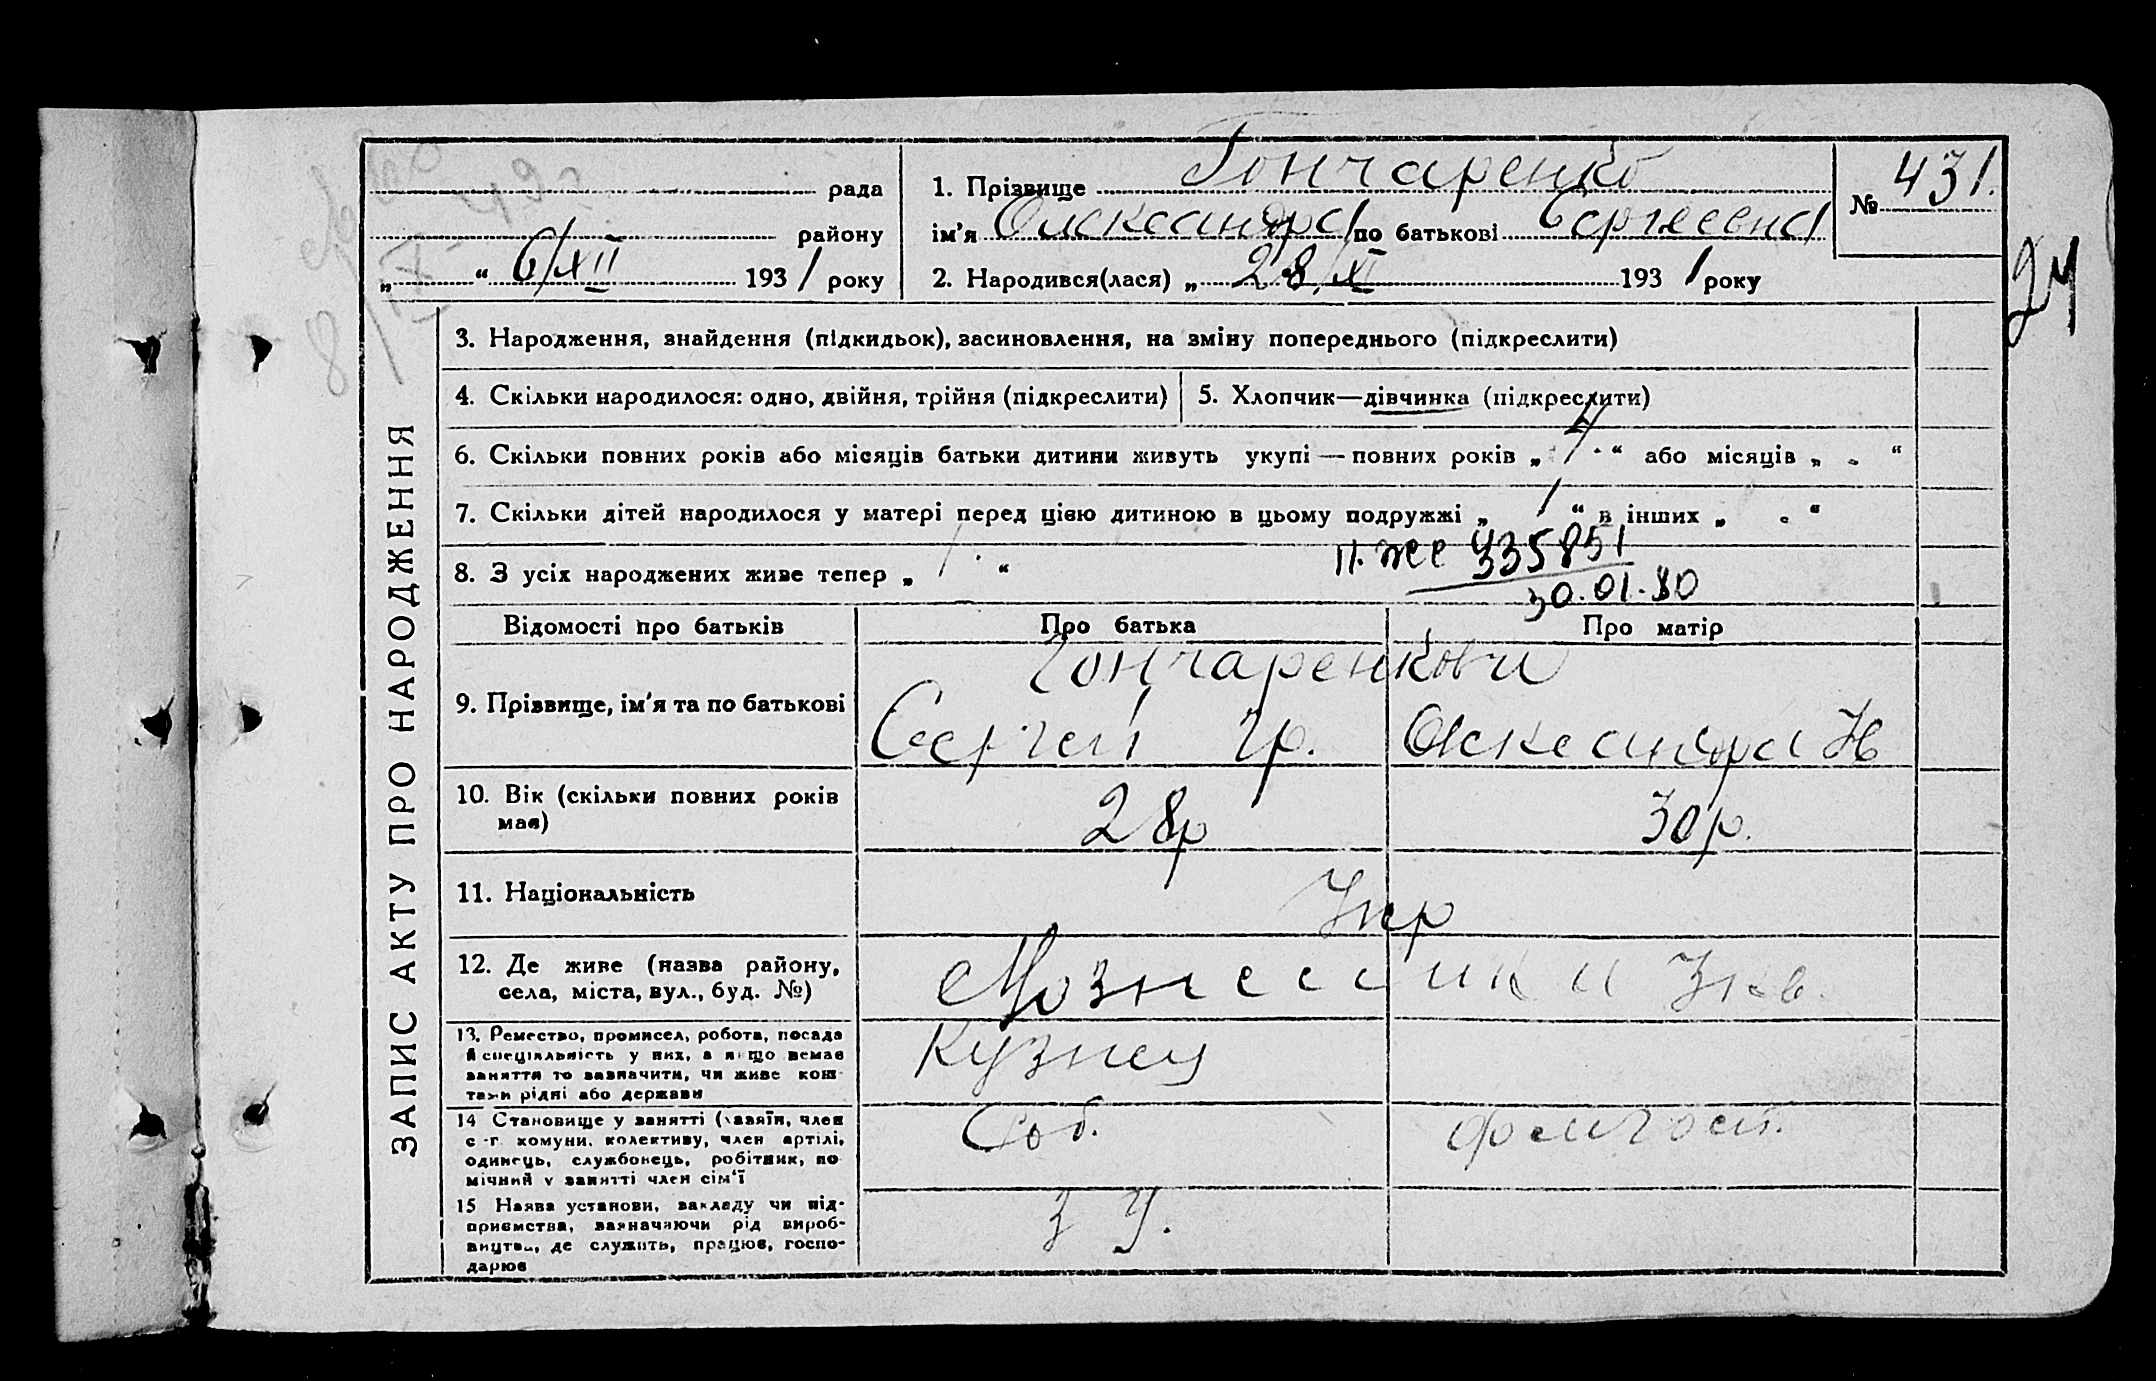 рада
району
„ “ 6/XII 1931 року
1. Прізвище Гончаренко
ім'я Олександра по батькові Сергеевна
2. Народився(лася) „ 28/XI 1931 року
№ 431.
24
ЗАПИС АКТУ ПРО НАРОДЖЕННЯ
3. Народження, знайдення (підкидьок), засиновлення, на зміну попереднього (підкреслити)
4. Скільки народилося: одно, двійня, трійня (підкреслити)
5. Хлопчик—дівчинка (підкреслити)
6. Скільки повних років або місяців батьки дитини живуть укупі — повних років „ 4 “ або місяців „ „ “
7. Скільки дітей народилося у матері перед цією дитиною в цьому подружжі „ 1 “ в інших „ “
8. З усіх народжених живе тепер „ 1 “
335851
30.01.80
Відомості про батьків
Про батька
Про матір
9. Прізвище, ім'я та по батькові
Гончаренкови
Сергей Гр.
Олександра
10. Вік (скільки повних років
має)
28р
30р.
11. Національність
Укр
12. Де живе (назва району,
села, міста, вул., буд. №)
13. Ремество, промисел, робота, посада
й спеціяльність у них, а якщо немає
заняття то зазначити, чи живе кош-
тами рідні або держави
Кузнец
14 Становище у занятті (хазяїн, член
с.-г. комуни, колективу, член артілі,
одинець, службовець, робітник, по-
мічний у занятті член сім'ї
Роб.
домгосп.
15 Назва установи, закладу чи під-
приємства, зазначаючи рід вироб-
ництва, де служить, працює, госпо-
дарює
З У.